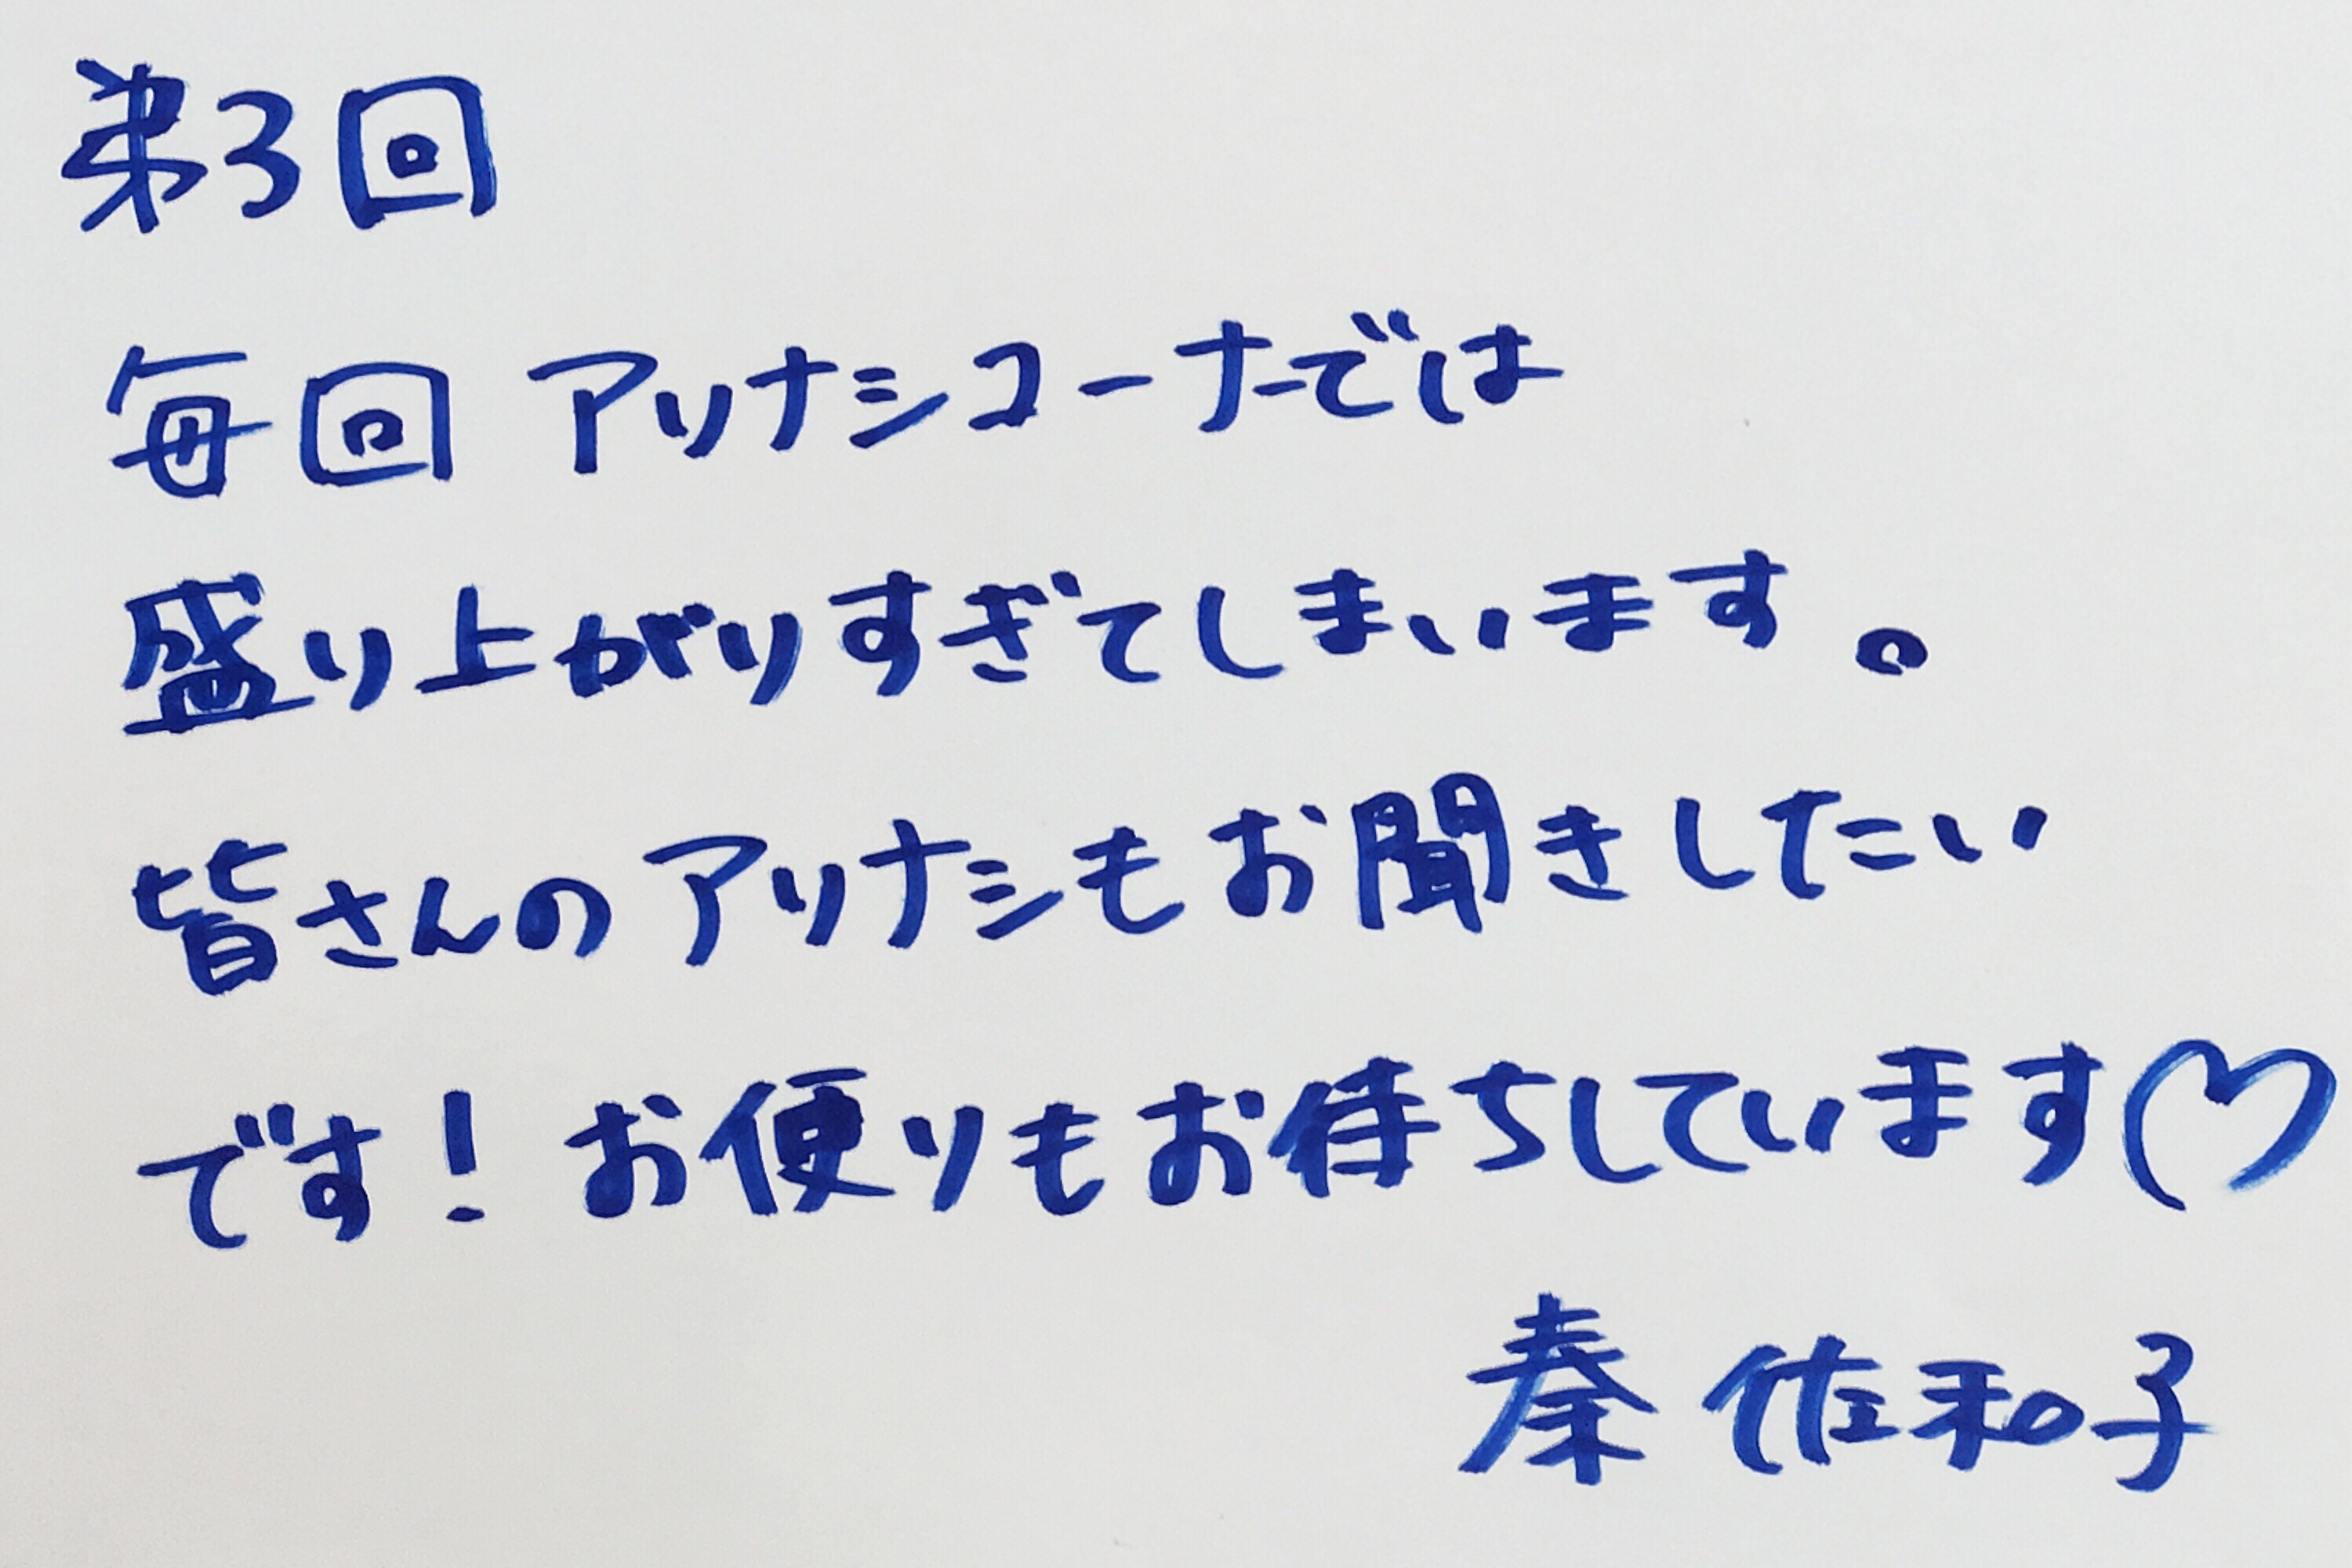 第3回
毎回 アリナシコーナーでは
盛り上がりすぎてしまいます。
皆さんのアリナシもお聞きしたい
です! お便りもお待ちしています♡
秦 佐和子